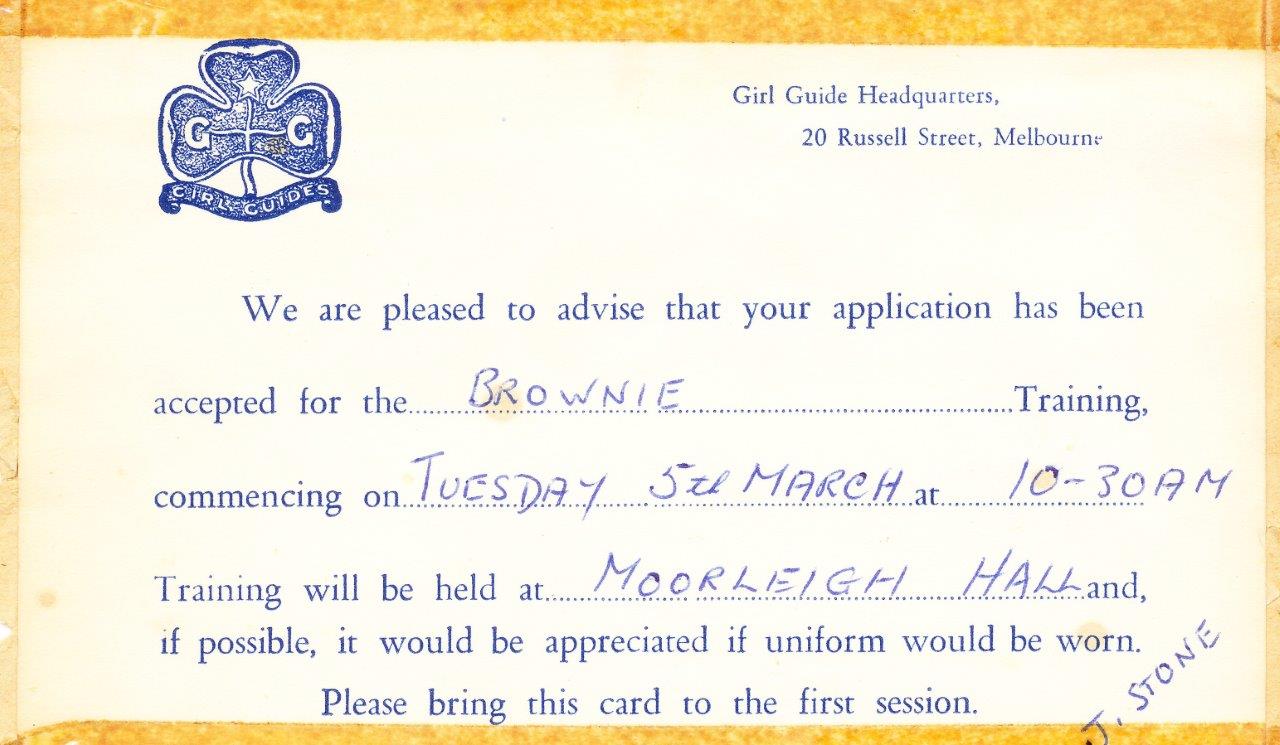 G G
GIRL GUIDES
Girl Guide Headquarters,
20 Russell Street, Melbourne
We are pleased to advise that your application has been
accepted for the BROWNIE Training,
commencing on TUESDAY 5th MARCH at 10-30 AM
Training will be held at MOORLEIGH HALL and,
if possible, it would be appreciated if uniform would be worn.
Please bring this card to the first session.
J. STONE